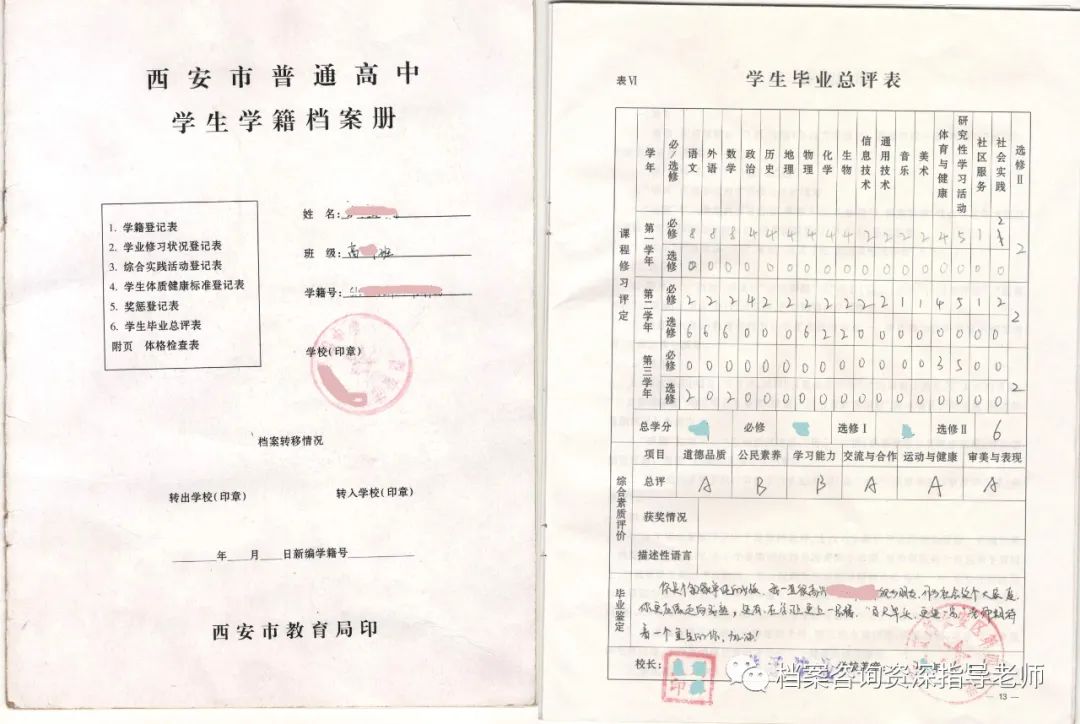 西安市普通高中
学生学籍档案册
1. 学籍登记表
2. 学业修习状况登记表
3. 综合实践活动登记表
4. 学生体质健康标准登记表
5. 奖惩登记表
6. 学生毕业总评表
附页 体格检查表
姓 名:
班 级: 高 班
学籍号:
学校(印章)
档案转移情况
转出学校(印章) 转入学校(印章)
年 月 日新编学籍号
西安市教育局印
表Ⅵ 学生毕业总评表
学年 必/选修 语文 外语 数学 政治 历史 地理 物理 化学 生物 信息技术 通用技术 音乐 美术 体育与健康 研究性学习活动 社区服务 社会实践 选修Ⅱ
课程修习评定
第一学年 必修 8 8 8 4 4 4 4 4 4 2 2 2 2 4 5 1 2 2
选修 0 0 0 0 0 0 0 0 0 0 0 0 0 0 0 0 0
第二学年 必修 2 2 2 4 2 2 2 2 2 2 2 1 1 4 5 1 2 2
选修 6 6 6 0 0 0 6 2 2 0 0 0 0 0 0 0 0
第三学年 必修 0 0 0 0 0 0 0 0 0 0 0 0 0 3 5 0 0 2
选修 2 0 2 0 0 0 0 0 0 0 0 0 0 0 0 0 0
总学分 必修 选修Ⅰ 选修Ⅱ 6
综合素质评价
项目 道德品质 公民素养 学习能力 交流与合作 运动与健康 审美与表现
总评 A B B A A A
获奖情况
描述性语言
毕业鉴定
校长:
印
档案咨询资深指导老师
— 13 —